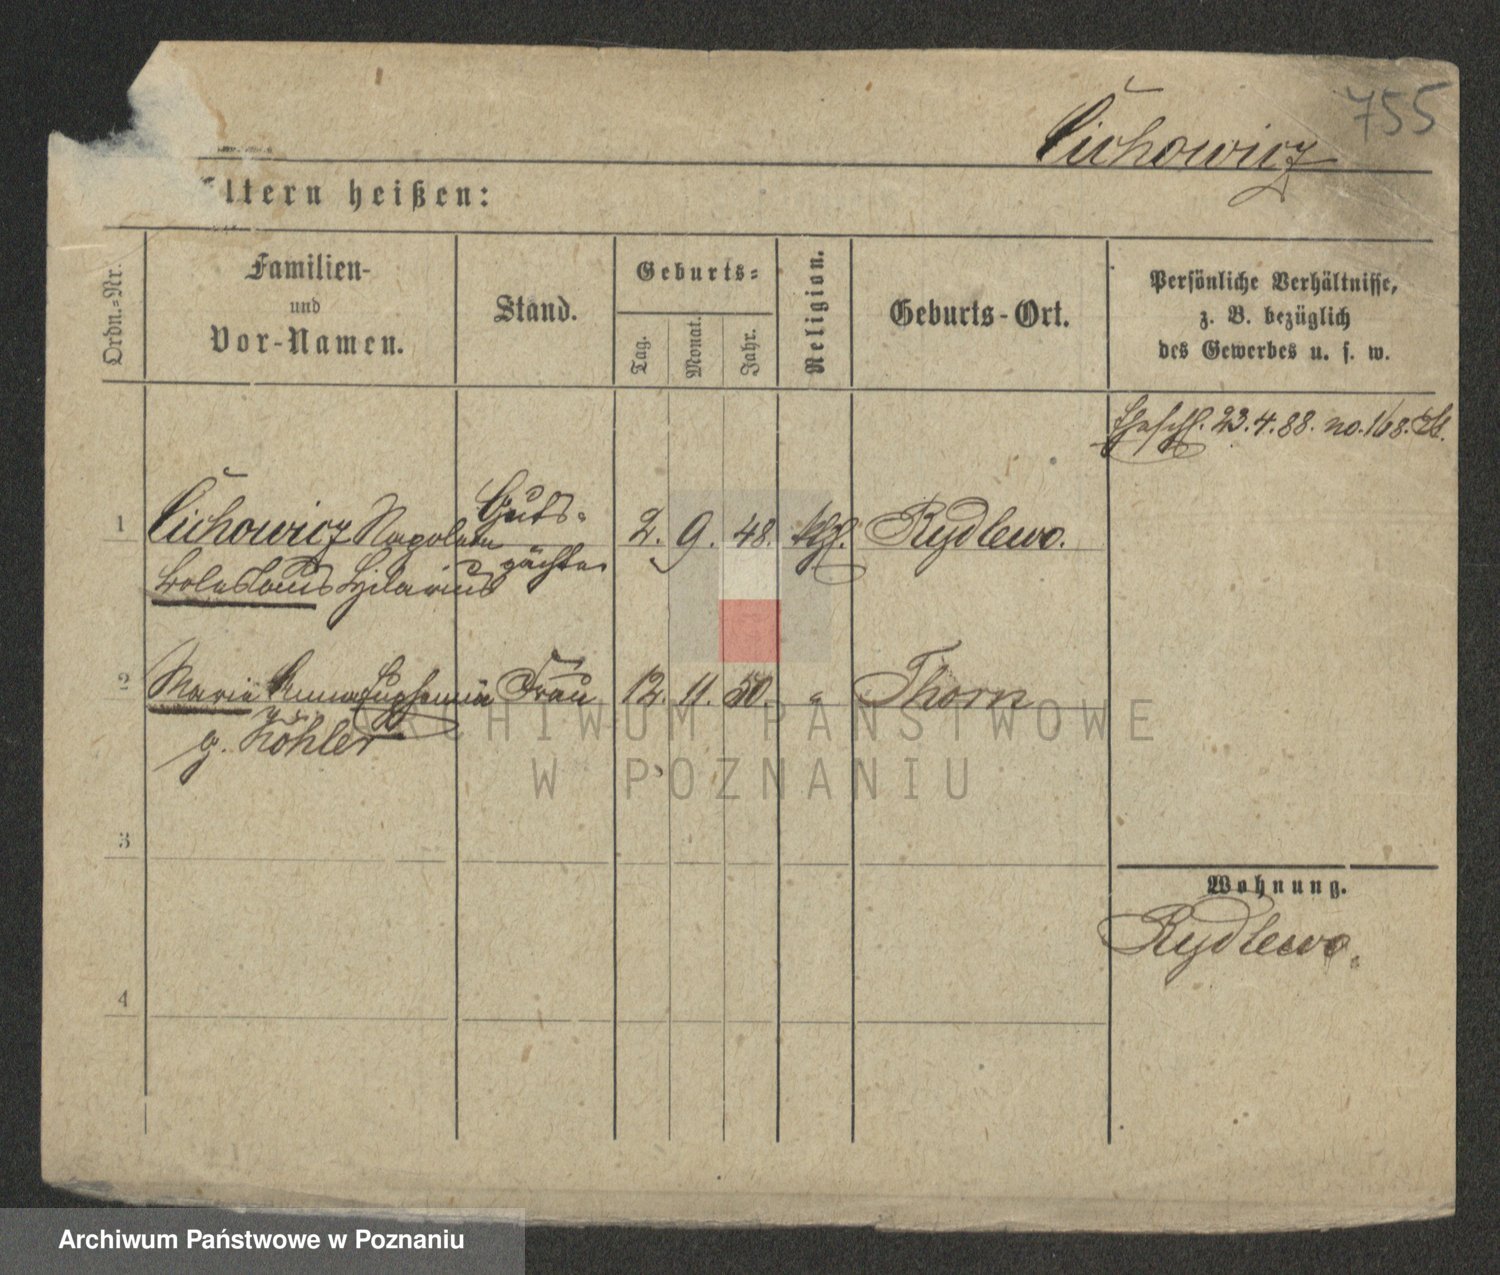 755
Cichowicz
ltern heißen:
Ordn.-Nr.
Familien-
und
Vor-Namen.
Stand.
Geburts-
Tag.
Monat.
Jahr.
Religion.
Geburts-Ort.
Persönliche Verhältnisse,
z. B. bezüglich
des Gewerbes u. s. w.
Eheschl. 23.4.88. no. 168. St.
1 Cichowicz Napoleon Guts- 2. 9. 48. kth. Rydlewo.
Boleslaus Hilarius pächter
2 Marie Anna Euphemia Frau 12. 11. 50. " Thorn
g. Köhler
ARCHIWUM PAŃSTWOWE
W POZNANIU
3
Wohnung.
Rydlewo.
4
Archiwum Państwowe w Poznaniu